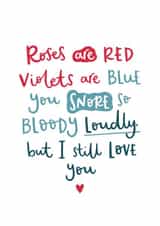 Roses are RED
Violets are BLUE
you SNORE so
BLOODY Loudly
but I still LOVE
you